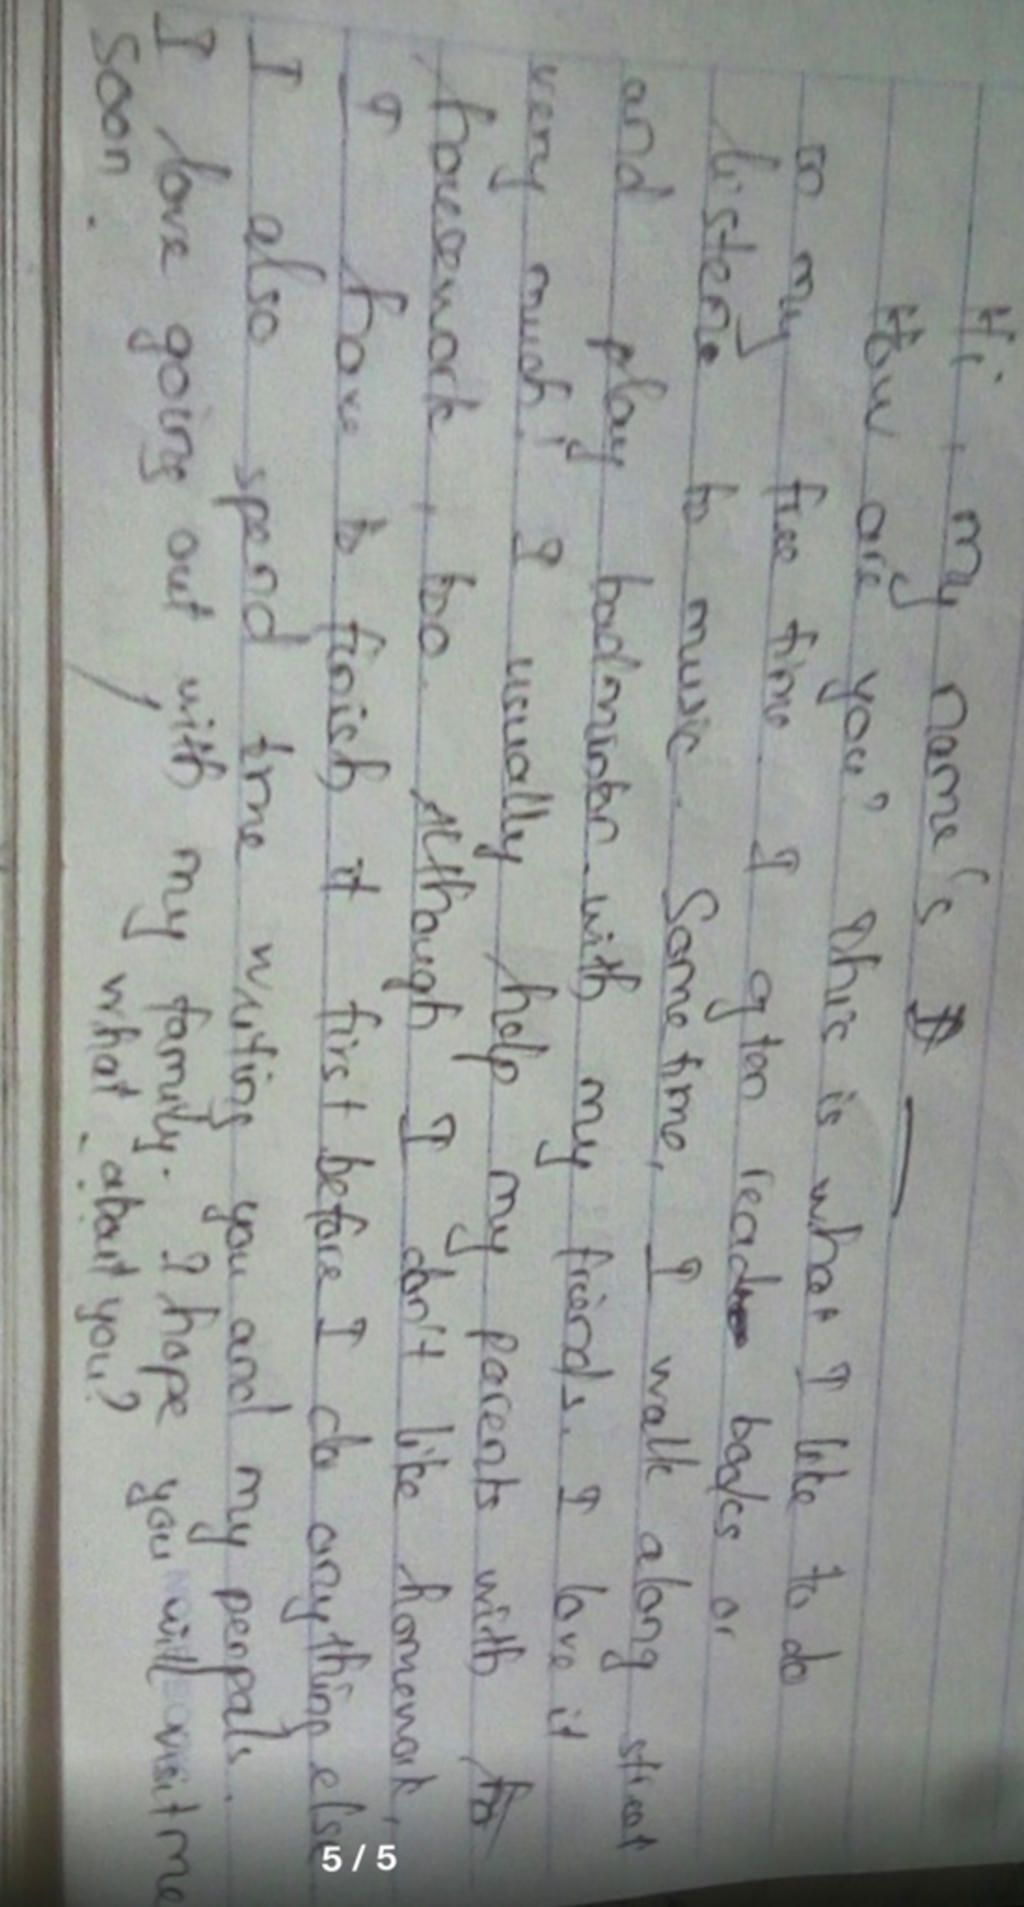 Hi, my name's
How are you? This is what I like to do
in my free time. I often read books or
listene to music. Sometime, I walk along street
and play badminton with my friends. I love it
very much! I usually help my parents with
housework, too. Although I don't like homework,
I have to finish it first before I do anything else
I also spend time writing you and my penpals.
I love going out with my family. I hope you will visit me
soon. What about you?
5/5